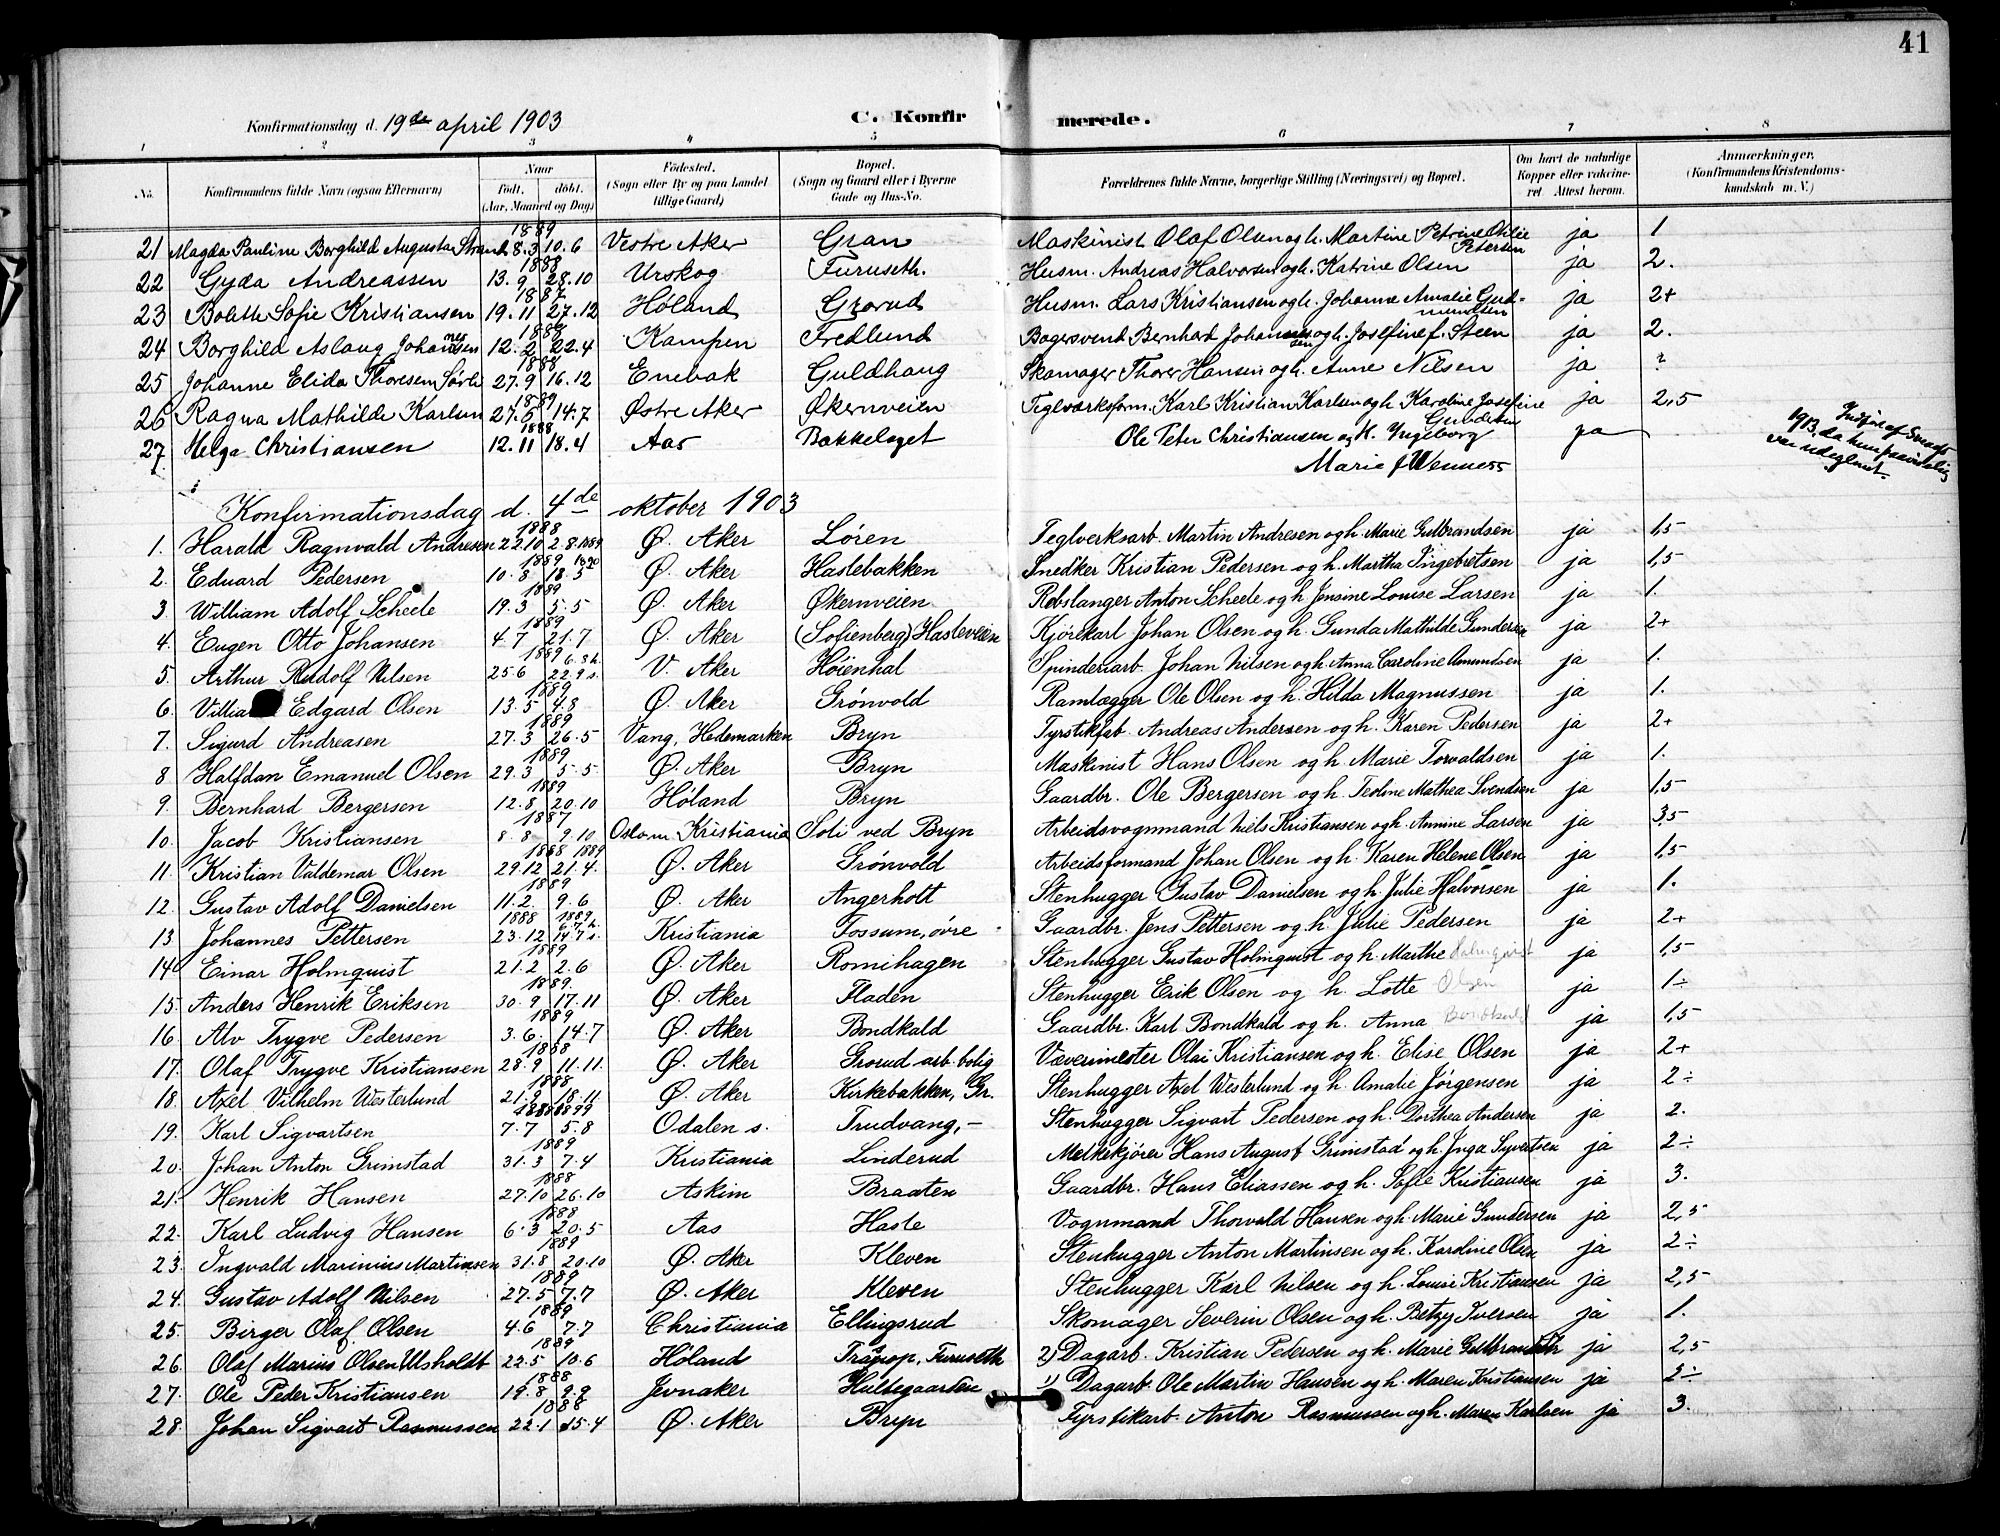 41
Konfirmationsdag d. 19de april 1903 C. Konfirmerede.
1 2 3 4 5 6 7 8
No. Konfirmandens fulde Navn (ogsaa Efternavn) Naar født. døbt. (Aar, Maaned og Dag) Fødested. (Sogn eller By og paa Landet tillige Gaard) Bopæl. (Sogn og Gaard eller i Byerne Gade og Hus-No. Forældrenes fulde Navne, borgerlige Stilling (Næringsvei) og Bopæl. Om havt de naturlige Kopper eller vaccineret Attest herom. Anmærkninger. (Konfirmandens Kristendomskundskab m. V.)
21 Magda Pauline Borghild Augusta Strand 1889 8.3 10.6 Vestre Aker Gran Maskinist Olaf Olsen og h. Martine Petrine Otilie Petersen ja 1
22 Gyda Andreassen 1888 13.9 28.10 Urskog Furuseth. Husm. Andreas Halvorsen og h. Katrine Olsen ja 2.
23 Bolette Sofie Kristiansen 1887 19.11 27.12 Høland Grorud Husm. Lars Kristiansen og h. Johanne Amalie Gudmundsen ja 2+
24 Borghild Aslaug Johannesen 1888 12.2 22.4 Kampen Fredlund Bagersvend Bernhard Johannesen og h. Josefine f. Steen ja 2.
25 Johanne Elida Thoresen Sørli 1888 27.9 16.12 Enebak Guldhaug Skomager Thorer Hansen og h. Anne Nilsen ja ?
26 Ragna Mathilde Karlsen 1889 27.5 14.7 Østre Aker Økernveien Teglværksform. Karl Kristian Karlsen og h. Karoline Josefine Gundersen ja 2,5
27. Helga Christiansen 1888 12.11 18.4 Aas Bakkelaget Ole Peter Christiansen og h. Ingeborg Marie f Wenness ja Indført af 1913, da hun var udeglemt.
Konfirmationsdag d. 4de oktober 1903
1. Harald Ragnvald Andresen 1888 22.10 2.8.1889 Ø. Aker Løren Teglverksarb. Martin Andresen og h. Marie Gulbrandsen ja 1,5
2. Edvard Pedersen 1889 10.8 1890 18.5 Ø. Aker Haslebakken Snedker Kristian Pedersen og h. Martha Ingebretsen ja 1,5
3. William Adolf Scheele 1889 19.3 5.5 Ø. Aker Økernveien Rebslanger Anton Scheele og h. Jensine Louise Larsen ja 1.
4. Eugen Otto Johansen 1889 4.7 21.7 Ø. Aker (Sofienberg) Hasleveien Kjørekarl Johan Olsen og h. Gunda Mathilde Gundersen ja 2+
5. Arthur Rudolf Nilsen 1889 25.6 6.3 h. 22.9 s. V. Aker Høienhal Spinderiarb. Johan Nilsen og h. Anna Caroline Amundsen ja 1.
6. Edgard Olsen 1889 13.5 4.8 Ø. Aker Grønvold Ramlægger Ole Olsen og h. Hilda Magnussen ja 1.
7. Sigurd Andreasen 1889 27.3 26.5 Vang, Hedemarken Bryn Fyrstikfab. Andreas Andersen og h. Karen Pedersen ja 2+
8 Halfdan Emanuel Olsen 1889 29.3 5.5 Ø. Aker Bryn Maskinist Hans Olsen og h. Marie Torvaldsen ja 1.
9. Bernhard Bergersen 1889 12.8 20.10 Høland Bryn Gaardbr. Ole Bergersen og h. Teoline Mathea Svendsen ja 1,5
10. Jacob Kristiansen 1887 8.8 9.10 Oslo m. Kristiania Soli ved Bryn Arbeidsvognmand Niels Kristiansen og h. Annine Larsen ja 3,5
11. Kristian Valdemar Olsen 1888 29.12 1889 21.4. Ø. Aker Grønvold Arbeidsformand Johan Olsen og h. Karen Helene Olsen ja 1,5
12. Gustav Adolf Danielsen 1889 11.2. 9.6 Ø. Aker Angerholt Stenhugger Gustav Danielsen og h. Julie Halvorsen ja 1.
13. Johannes Pettersen 1888 23.12 1889. 6.7 h. 14.7 s. Kristiania Fossum, øvre Gaardbr. Jens Pettersen og h. Julie Pedersen ja 2+
14 Einar Holmquist 1889 21.2 2.6 Ø. Aker Romihagen Stenhugger Gustav Holmquist og h. Marthe Holmquist ja 1,5
15. Anders Henrik Eriksen 1889. 30.9 17.11 Ø. Aker Fladen Stenhugger Erik Olsen og h. Lotte Olsen ja 1÷
16. Alv Trygve Pedersen 1889 3.6. 14.7 Ø. Aker Bondkald Gaardbr. Karl Bondkald og h. Anna Bondkald ja 1,5
17. Olaf Trygve Kristiansen 1888 28.9 11.11. Ø. Aker Grorud arb.bolig Vævermester Olai Kristiansen og h. Elise Olsen ja 2+
18. Axel Vilhelm Westerlund 1888 21.9 18.11 Ø. Aker Kirkebakken, Gr. Stenhugger Axel Westerlund og h. Amalie Jørgensen ja 2÷
19. Karl Sigvartsen 7.7 5.8 Odalen s. Trudvang, — Stenhugger Sigvart Pedersen og h. Dorthea Andersen ja 2.
20. Johan Anton Grimstad 1889 31.3 7.4 Kristiania Linderud Melkekjører Hans August Grimstad og h. Inga Syvertsen ja 2÷
21. Henrik Hansen 1888 27.10 26.10 Askim Braaten Gaardbr. Hans Eliassen og h. Sofie Kristiansen ja 3.
22. Karl Ludvig Hansen 1888 6.3 20.5 Aas Hasle Vognmand Thorvald Hansen og h. Marie Gundersen ja 2,5
23. Ingvald Marinius Martinsen 1889 31.8 20.10 Ø. Aker Kleven Stenhugger Anton Martinsen og h. Karoline Olsen ja 2÷
24. Gustav Adolf Nilsen 1889 27.5 7.7 Ø. Aker Kleven Stenhugger Karl Nilsen og h. Louise Kristiansen ja 2,5
25. Birger Olaf Olsen 1889 4.6 7.7 Christiania Ellingsrud Skomager Severin Olsen og h. Betzy Iversen ja 1.
26. Olaf Marius Olsen Usholdt 1889 22.5 10.6 Høland Furuseth 2) Dagarb. Kristian Pedersen og h. Marie ja 2,5
27. Ole Peder Kristiansen 1888 19.8 9.9 Jevnaker Hultegaarden 1) Dagarb. Ole Martin Hansen og h. Maren Kristiansen ja 2÷
28. Johan Sigvart Rasmussen 1888 22.1 15.4 Ø. Aker Bryn Fyrstikarb. Anton Rasmussen og h. Maren Karlsen ja 3.